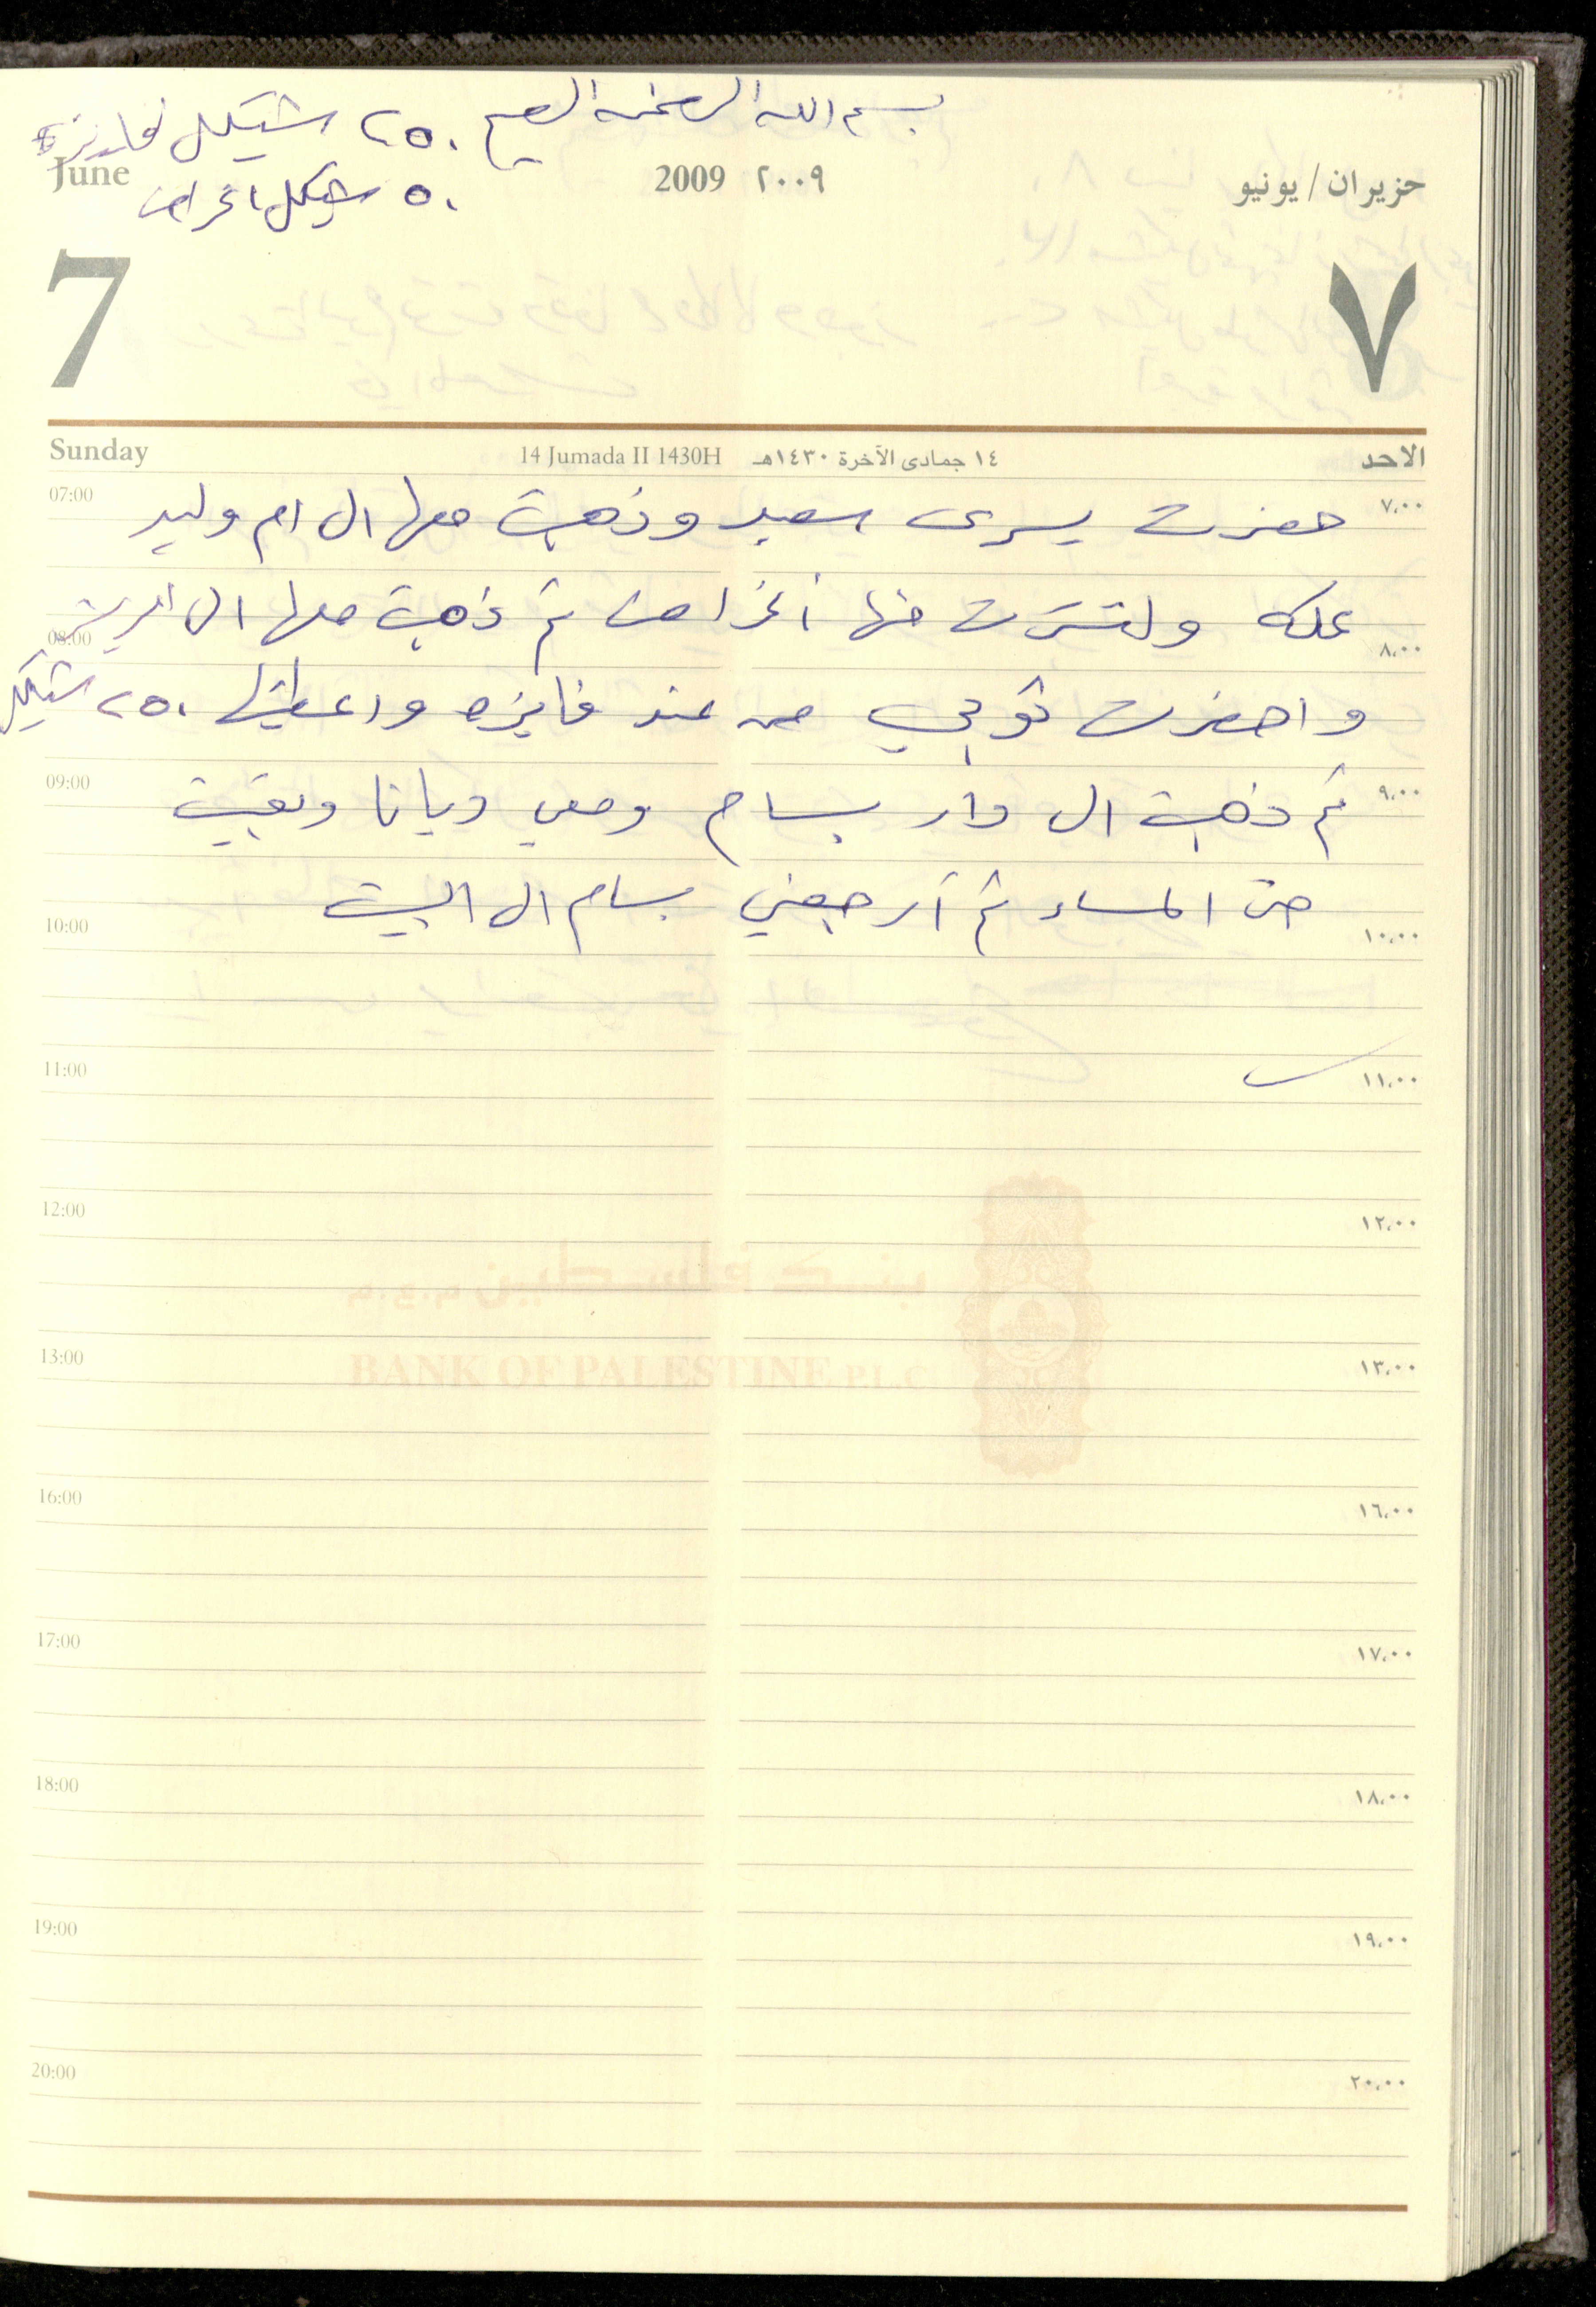 بسم الله الرحمن الرحيم ٢٥٠ شيكل فايزة
June 2009 ٢٠٠٩ حزيران / يونيو
٥٠ شيكل اغراض
7 ٧
Sunday 14 Jumada II 1430H ١٤ جمادى الآخرة ١٤٣٠هـ الاحد
07:00 ٧,٠٠
حضرت يسرى سعيد وذهبت معها ال ام وليد
عكه واشترت منها أغراض ثم ذهبت معها ال
08:00 ٨,٠٠
واحضرت ثوبي من عند فايزه واعطيتها ٢٥٠ شيكل
09:00 ٩,٠٠
ثم ذهبت ال دار بسام ومعي ديانا وبقيت
حتى المساء ثم أرجعني بسام ال البيت
10:00 ١٠,٠٠
11:00 ١١,٠٠
12:00 ١٢,٠٠
بنك فلسطين م.ع.م
13:00 ١٣,٠٠
BANK OF PALESTINE P.L.C
16:00 ١٦,٠٠
17:00 ١٧,٠٠
18:00 ١٨,٠٠
19:00 ١٩,٠٠
20:00 ٢٠,٠٠